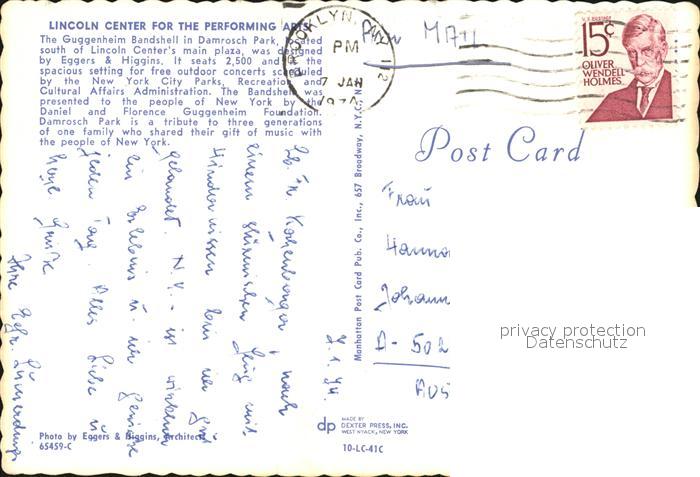 LINCOLN CENTER FOR THE PERFORMING ARTS
The Guggenheim Bandshell in Damrosch Park, located
south of Lincoln Center's main plaza, was designed
by Eggers & Higgins. It seats 2,500 and is the
spacious setting for free outdoor concerts scheduled
by the New York City Parks, Recreation and
Cultural Affairs Administration. The Bandshell was
presented to the people of New York by the
Daniel and Florence Guggenheim Foundation.
Damrosch Park is a tribute to three generations
of one family who shared their gift of music with
the people of New York.
BROOKLYN, NY 112
PM
7 JAN
U.S. POSTAGE
15c
OLIVER
WENDELL
HOLMES
Post Card
7.1.74.
nach
einem stürmischen Flug mit
Hindernissen bin ich gut
gelandet. N.Y. ist wirklich
ein Erlebnis u. ich genieße
jeden Tag. Alles Liebe u.
Grüße
Ihre
Frau
Hanna
Johann
A-502
AUS
Manhattan Post Card Pub. Co., Inc., 657 Broadway, N.Y.C. N.
privacy protection
Datenschutz
Photo by Eggers & Higgins, Architects
65459-C
dp
MADE BY
DEXTER PRESS, INC.
WEST NYACK, NEW YORK
10-LC-41C